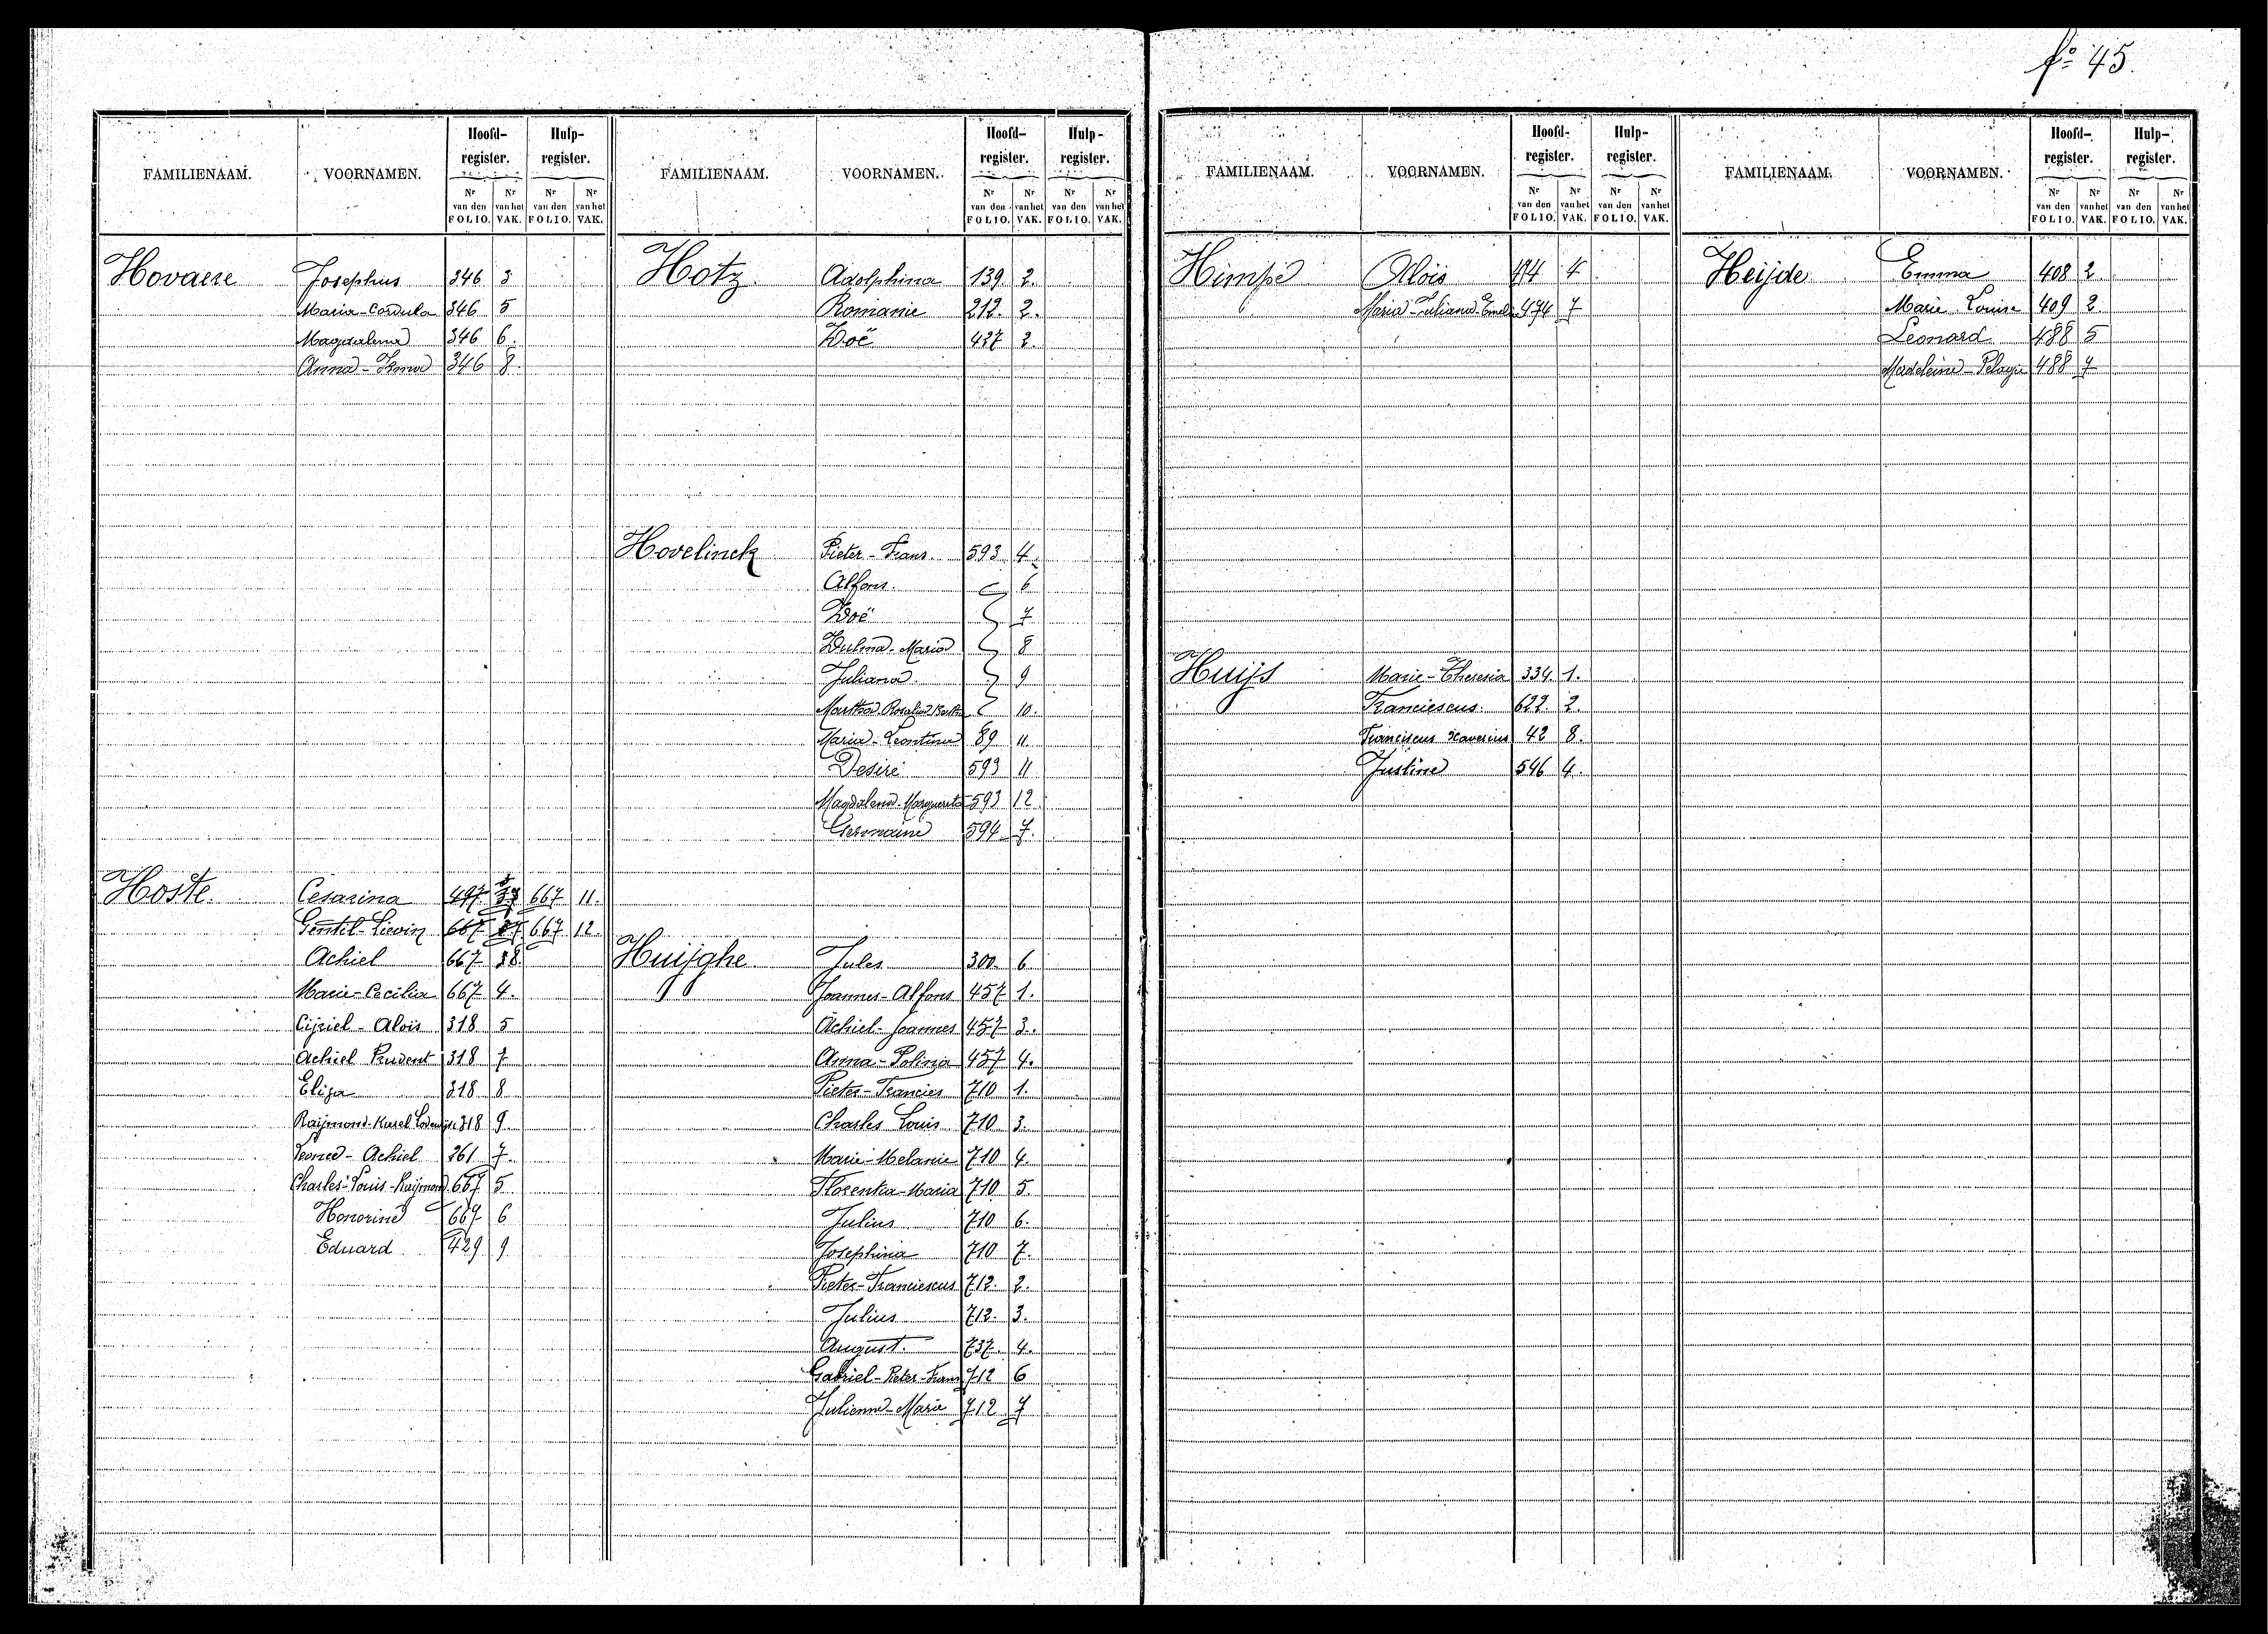 fº 45.
FAMILIENAAM. VOORNAMEN. Hoofd-register. Hulp-register.
Nr van den FOLIO. Nr van het VAK. Nr van den FOLIO. Nr van het VAK.
Hovaere Josephus 346 3
Maria-Cordula 346 5
Magdalena 346 6
Anna-Irma 346 8.
Hoste. Cesarina 497 667 11.
Gentil-Lievin 667 667 12
Achiel 667 38.
Marie-Cecilia 667 4.
Cijriel-Aloïs 318 5
Achiel Prudent 318 7
Eliza 318 8
Raijmond-Karel Lodewijk 318 9.
Leonce-Achiel 261 7.
Charles-Louis-Raijmond 667 5
Honorine 667 6
Eduard 429 9
FAMILIENAAM. VOORNAMEN. Hoofd-register. Hulp-register.
Nr van den FOLIO. Nr van het VAK. Nr van den FOLIO. Nr van het VAK.
Hotz. Adolphina 139 2.
Romanie 212. 2.
Zoë 437 3.
Hovelinck Pieter-Frans. 593 4.
Alfons. 6
Zoë 7
Zulma-Maria 8
Juliana 9
Martha Rosalia Bertha 10.
Maria-Leontina 89 11
Desiré 593 11
Magdalena-Margareta 593 12
Germaine 594 7.
Huijghe Jules 300 6
Joannes-Alfons 457 1.
Achiel-Joannes 457 3.
Anna-Polinia 457 4.
Pieter-Francies 710 1.
Charles Louis 710 3.
Marie-Melanie 710 4.
Florentia-Maria 710 5.
Julius 710 6.
Josephina 710 7.
Pieter-Franciescus 712. 2.
Julius 712. 3.
August. 737. 4.
Gabriel-Pieter-Frans 712 6
Julienne-Marie 712 7
FAMILIENAAM. VOORNAMEN. Hoofd-register. Hulp-register.
Nr van den FOLIO. Nr van het VAK. Nr van den FOLIO. Nr van het VAK.
Himpe Aloïs 474 4
Maria-Juliana 474 7
Huijs Marie-Theresia 334. 1.
Franciescus. 622. 2.
Franciscus Xaverius 42 8.
Justine 546 4.
FAMILIENAAM. VOORNAMEN. Hoofd-register. Hulp-register.
Nr van den FOLIO. Nr van het VAK. Nr van den FOLIO. Nr van het VAK.
Heijde Emma 408 2
Marie Louise 409 2
Leonard 488 5
Madeleine-Pelagie 488 7